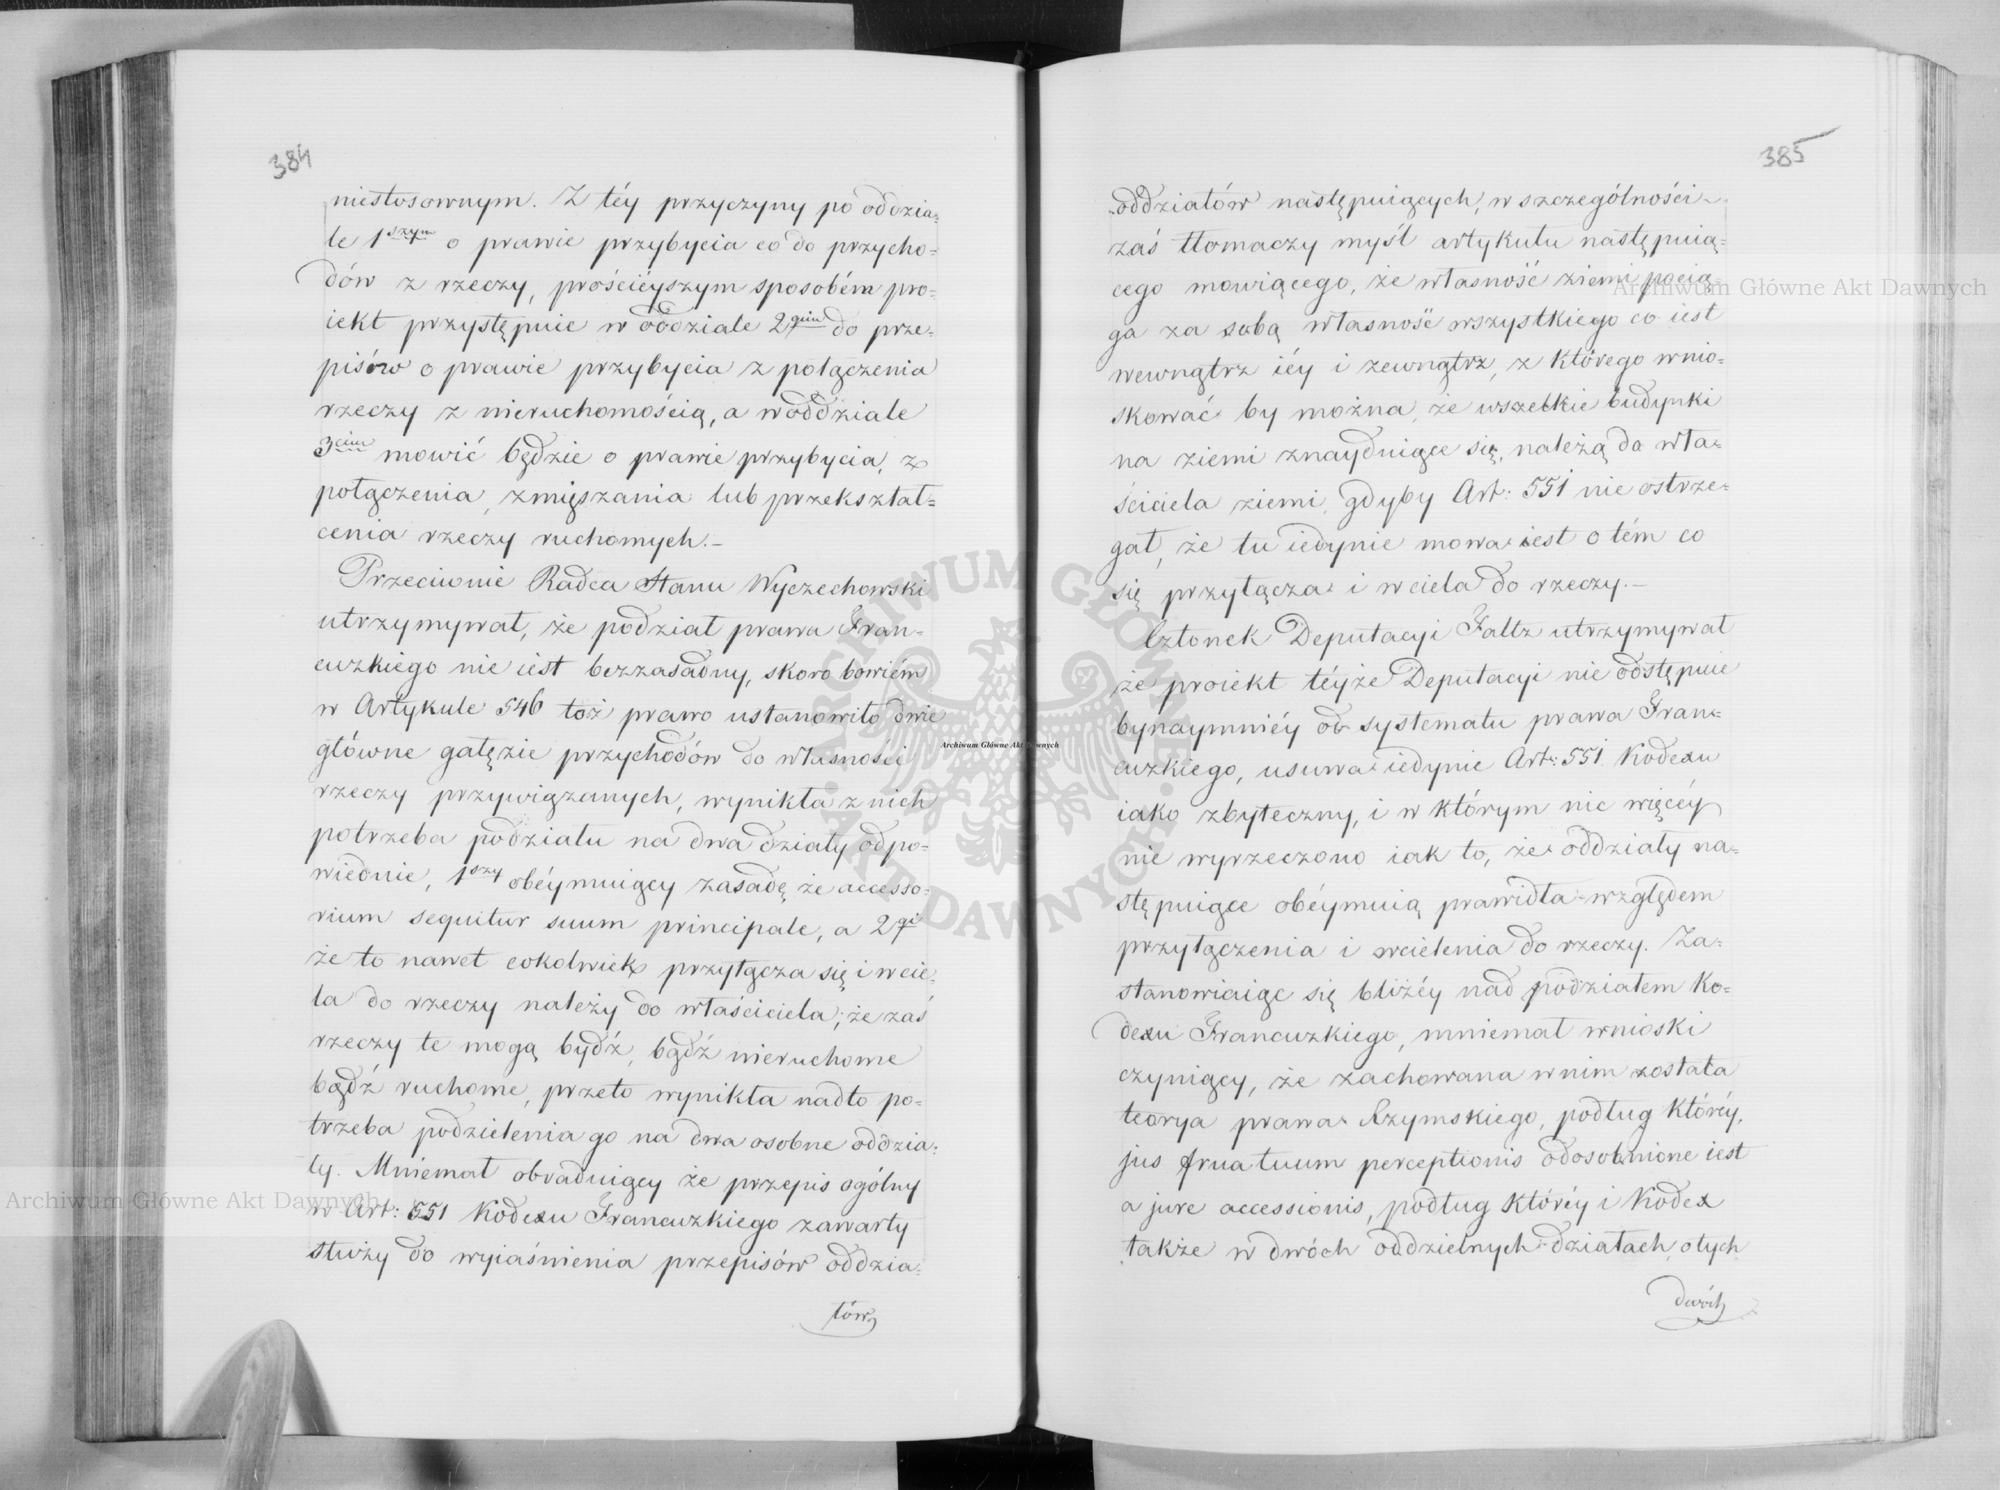 384
niestosownym. Z téy przyczyny po oddzia=
le 1szym o prawie przybycia co do przycho=
dów z rzeczy, prościéyszym sposobém pro=
iekt przystępuie w oddziale 2gim do prze=
pisów o prawie przybycia z połączenia
rzeczy z nieruchomością, a w oddziale
3cim mowić będzie o prawie przybycia, z
połączenia, zmięszania lub przekształ=
cenia rzeczy ruchomych.–
Przeciwnie Radca Stanu Wyczechowski
utrzymywał, że podział prawa Fran=
cuzkiego nie iest bezzasadny, skoro bowiém
w Artykule 546 toż prawo ustanowiło dwie
główne gałęzie przychodów do własności
rzeczy przywiązanych, wynikła z nich
potrzeba podziału na dwa działy odpo=
wiednie, 1szy obéymuiący zasadę że accesso=
rium sequitur suum principale, a 2gi
że to nawet cokolwiek przyłącza się i wcie=
la do rzeczy należy do właściciela; że zaś
rzeczy te mogą bydź, bądź nieruchome
bądź ruchome, przeto wynikła nadto po=
trzeba podzielenia go na dwa osobne oddzia=
ły. Mniemał obraduiący że przepis ogólny
w Art: 551 Kodexu Francuzkiego zawarty
służy do wyiaśnienia przepisów oddzia=
łów
385
oddziałów następuiących, w szczególności
zaś tłomaczy myśl artykułu następuią=
cego mowiącego, że własność ziemi pocią=
ga za sobą własność wszystkiego co iest
wewnątrz iéy i zewnątrz, z którego wnio=
skować by można, że wszelkie budynki
na ziemi znayduiące się, należą do wła=
ściciela ziemi, gdyby Art: 551 nie ostrze=
gał, że tu iedynie mowa iest o tém co
się przyłącza i wciela do rzeczy.–
Członek Deputacyi Faltz utrzymywał
że proiekt téyże Deputacyi nie odstępuie
bynaymniéy od systematu prawa Fran=
cuzkiego, usuwa iedynie Art: 551 Kodexu
iako zbyteczny, i w którym nic więcéy
nie wyrzeczono iak to, że oddziały na=
stępuiące obéymuią prawidła względem
przyłączenia i wcielenia do rzeczy. Za=
stanowiaiąc się bliżéy nad podziałem Ko=
dexu Francuzkiego, mniemał wnioski
czyniący, że zachowana w nim została
teorya prawa Rzymskiego, podług któréy,
jus fruatuum perceptionis odosobnione iest
a jure accessionis, podług któréy i Kodex
także w dwóch oddzielnych działach, o tych
dwóch
Archiwum Główne Akt Dawnych
Archiwum Główne Akt Dawnych
Archiwum Główne Akt Dawnych
ARCHIWUM GŁÓWNE AKT DAWNYCH